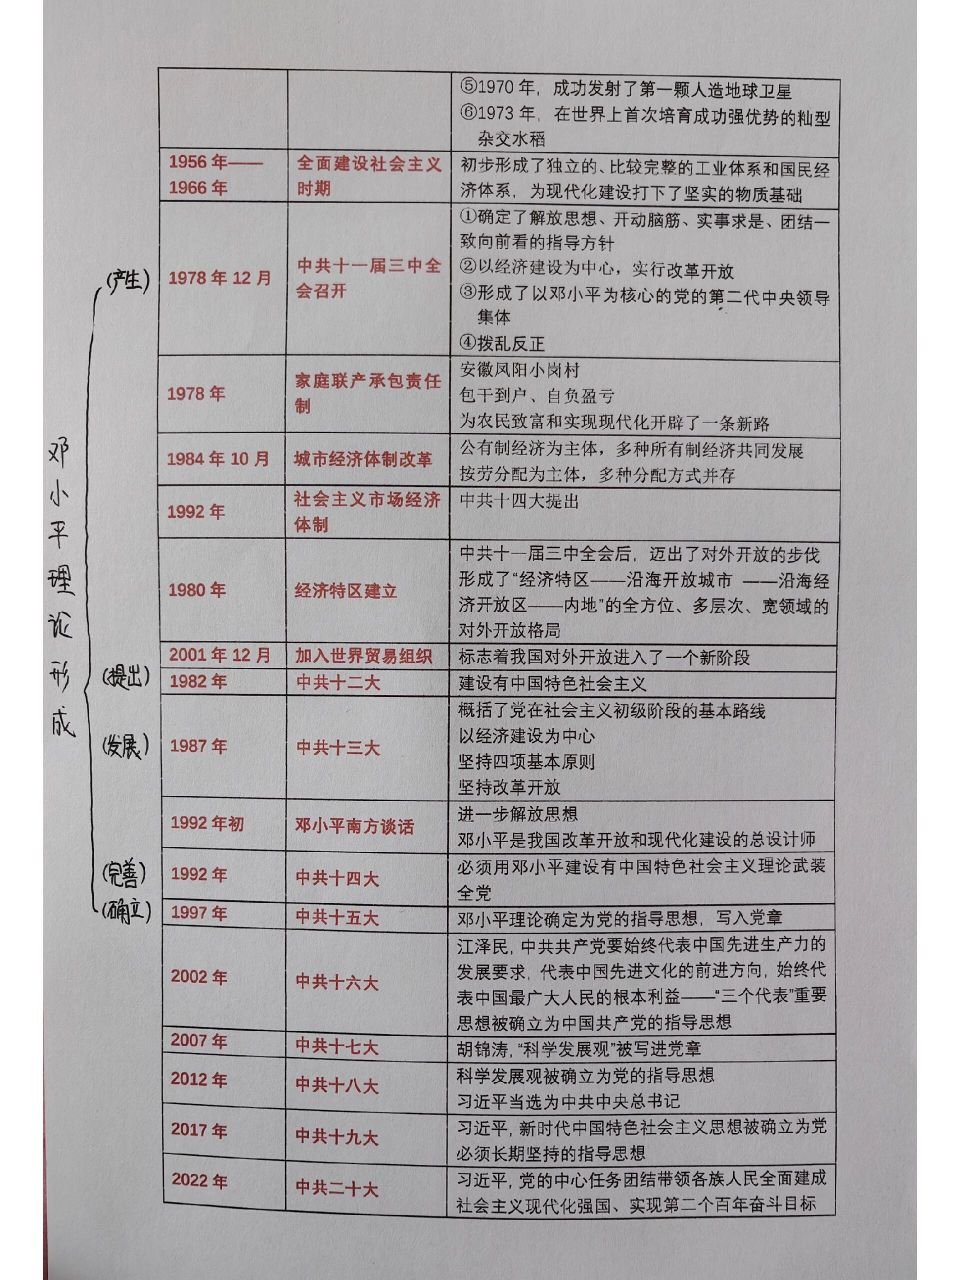 ⑤1970年，成功发射了第一颗人造地球卫星
⑥1973年，在世界上首次培育成功强优势的籼型
杂交水稻
1956年——
1966年
全面建设社会主义
时期
初步形成了独立的、比较完整的工业体系和国民经
济体系，为现代化建设打下了坚实的物质基础
(产生)
1978年12月
中共十一届三中全
会召开
①确定了解放思想、开动脑筋、实事求是、团结一
致向前看的指导方针
②以经济建设为中心，实行改革开放
③形成了以邓小平为核心的党的第二代中央领导
集体
④拨乱反正
1978年
家庭联产承包责任
制
安徽凤阳小岗村
包干到户、自负盈亏
为农民致富和实现现代化开辟了一条新路
1984年10月
城市经济体制改革
公有制经济为主体，多种所有制经济共同发展
按劳分配为主体，多种分配方式并存
1992年
社会主义市场经济
体制
中共十四大提出
1980年
经济特区建立
中共十一届三中全会后，迈出了对外开放的步伐
形成了“经济特区——沿海开放城市 ——沿海经
济开放区——内地”的全方位、多层次、宽领域的
对外开放格局
2001年12月
加入世界贸易组织
标志着我国对外开放进入了一个新阶段
(提出)
1982年
中共十二大
建设有中国特色社会主义
(发展)
1987年
中共十三大
概括了党在社会主义初级阶段的基本路线
以经济建设为中心
坚持四项基本原则
坚持改革开放
1992年初
邓小平南方谈话
进一步解放思想
邓小平是我国改革开放和现代化建设的总设计师
(完善)
1992年
中共十四大
必须用邓小平建设有中国特色社会主义理论武装
全党
(确立)
1997年
中共十五大
邓小平理论确定为党的指导思想，写入党章
2002年
中共十六大
江泽民，中共共产党要始终代表中国先进生产力的
发展要求，代表中国先进文化的前进方向，始终代
表中国最广大人民的根本利益——“三个代表”重要
思想被确立为中国共产党的指导思想
2007年
中共十七大
胡锦涛，“科学发展观”被写进党章
2012年
中共十八大
科学发展观被确立为党的指导思想
习近平当选为中共中央总书记
2017年
中共十九大
习近平，新时代中国特色社会主义思想被确立为党
必须长期坚持的指导思想
2022年
中共二十大
习近平，党的中心任务团结带领各族人民全面建成
社会主义现代化强国、实现第二个百年奋斗目标
邓小平理论形成